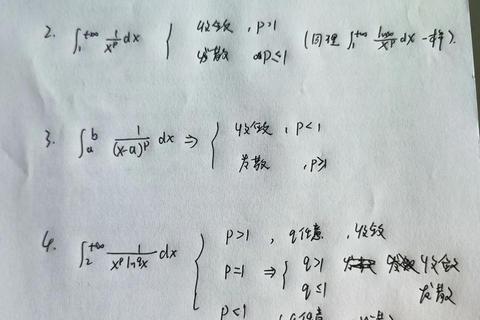 2. ∫₁^{+∞} 1/x^p dx { 收敛, p>1
发散 p≤1 (同理 ∫₁^{+∞} lnx/x^p dx 一样).
3. ∫ₐ^b 1/(x-a)^p dx ⇒ { 收敛, p<1
发散, p≥1
4. ∫₂^{+∞} 1/(x^p ln^q x) dx { p>1, q任意, 收敛
p=1 ⇒ { q>1 收敛
q≤1 发散
p<1 (q任意